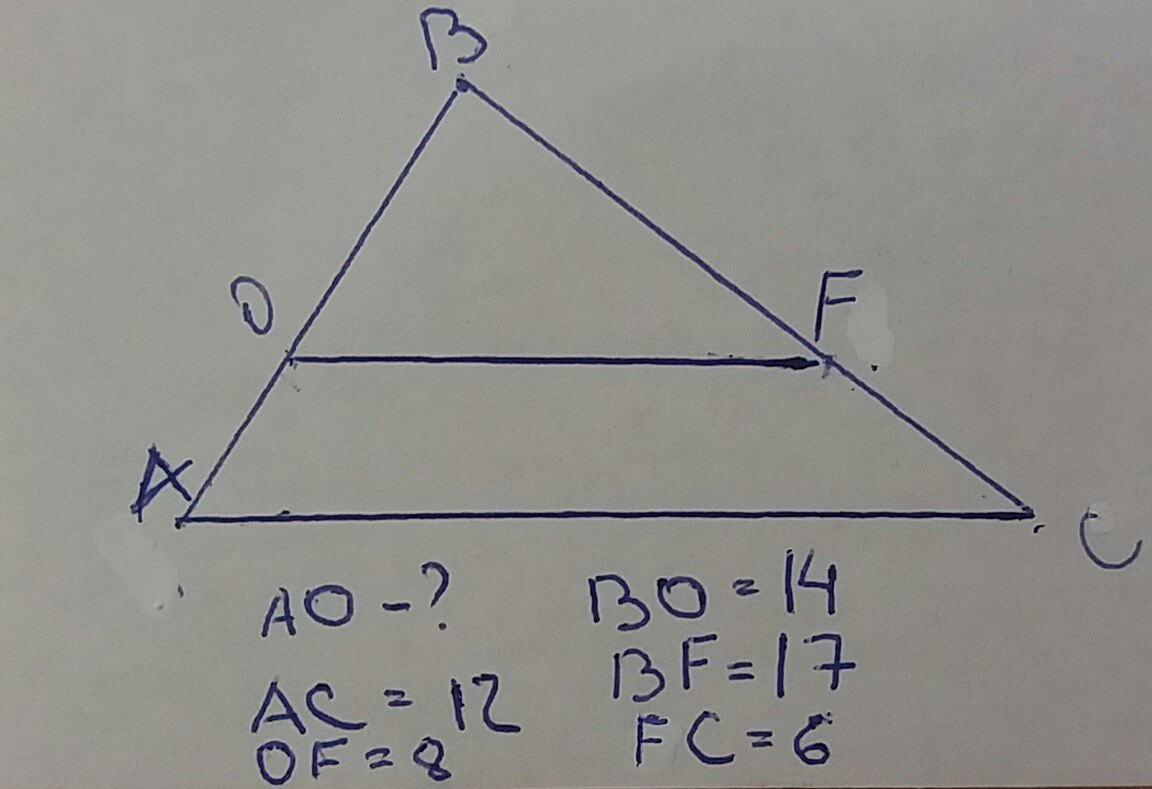 B
O
F
A
C
AO - ?
BO = 14
BF = 17
AC = 12
FC = 6
OF = 8